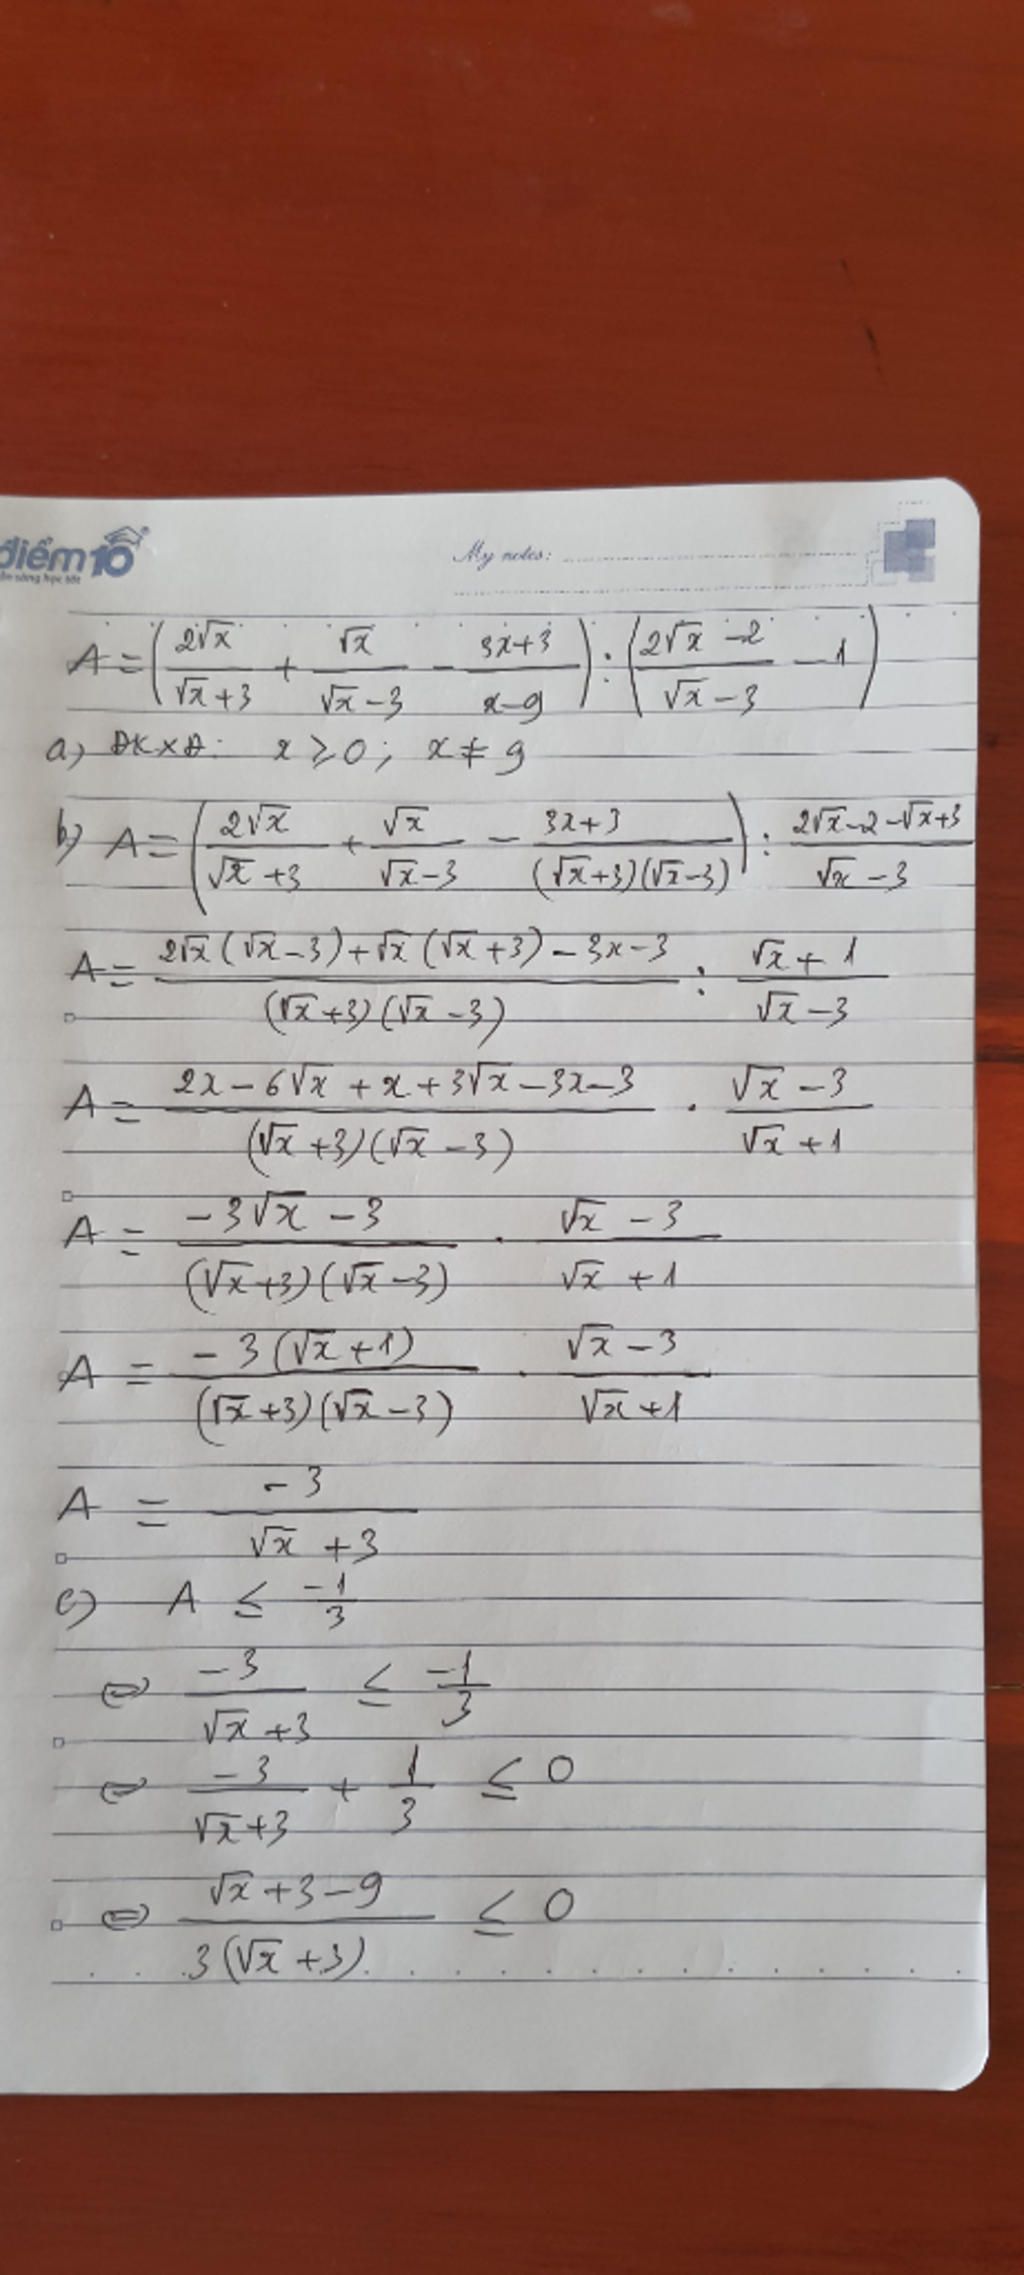 điểm10
My notes:
A = (2√x/(√x+3) + √x/(√x-3) - (3x+3)/(x-9)) : ((2√x-2)/(√x-3) - 1)
a) ĐKXĐ: x ≥ 0; x ≠ 9
b) A = (2√x/(√x+3) + √x/(√x-3) - (3x+3)/((√x+3)(√x-3))) : (2√x-2-√x+3)/(√x-3)
A = (2√x(√x-3)+√x(√x+3)-3x-3)/((√x+3)(√x-3)) : (√x+1)/(√x-3)
A = (2x-6√x+x+3√x-3x-3)/((√x+3)(√x-3)) . (√x-3)/(√x+1)
A = (-3√x-3)/((√x+3)(√x-3)) . (√x-3)/(√x+1)
A = -3(√x+1)/((√x+3)(√x-3)) . (√x-3)/(√x+1)
A = -3/(√x+3)
c) A ≤ -1/3
⇔ -3/(√x+3) ≤ -1/3
⇔ -3/(√x+3) + 1/3 ≤ 0
⇔ (√x+3-9)/(3(√x+3)) ≤ 0